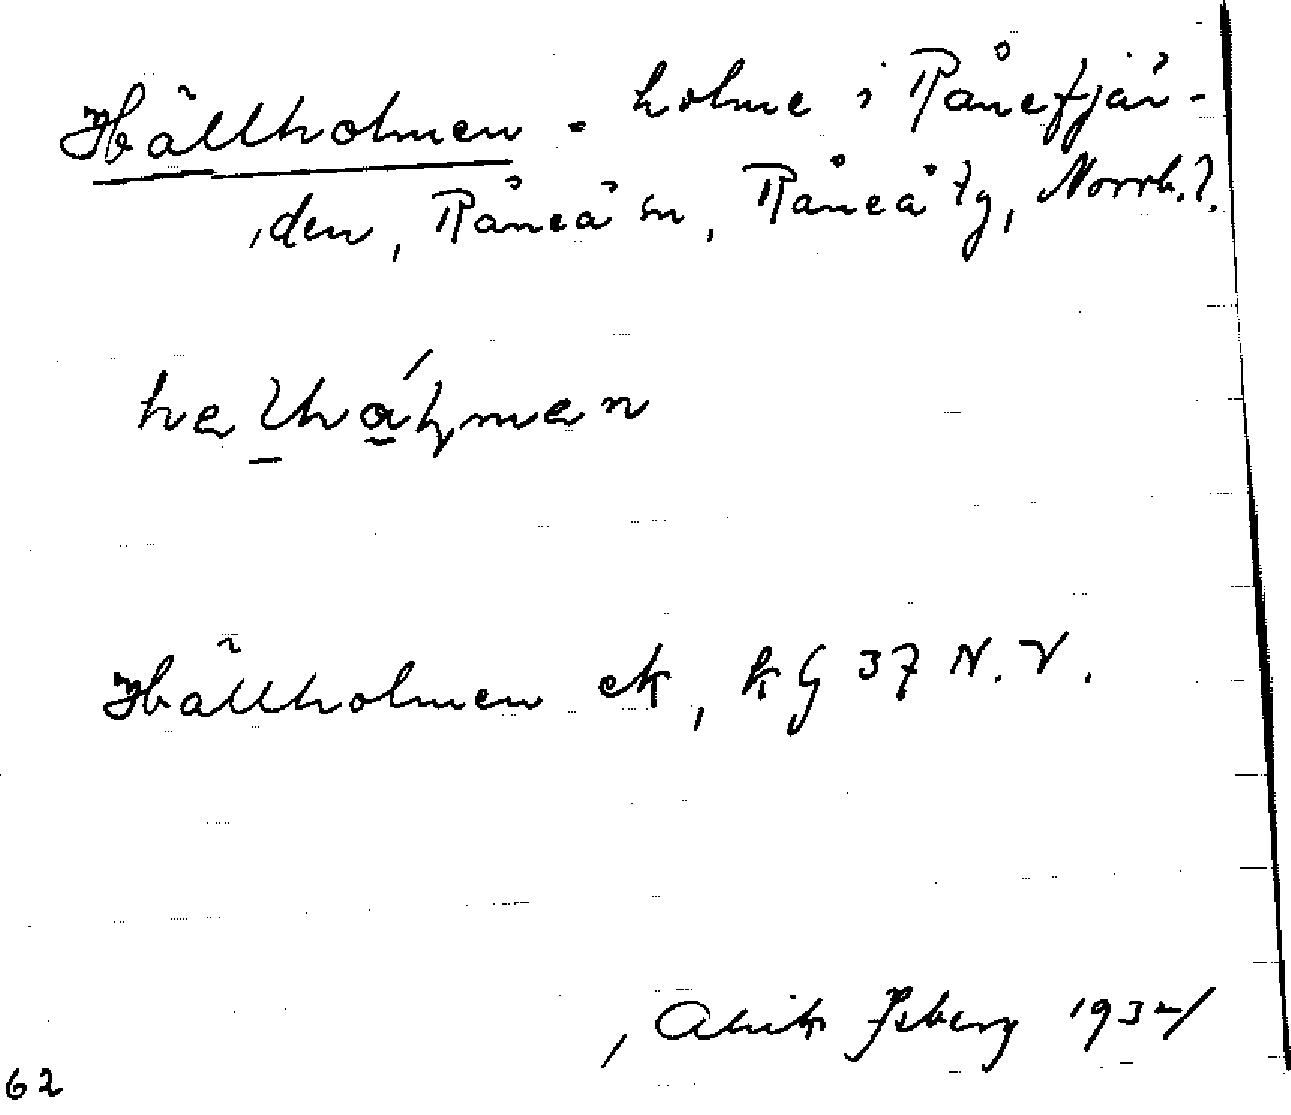 Hällholmen - holme i Rånefjär-
den, Råneå sn, Råneå tg, Norrb. l.
Hällholmen ek, kG 37 N.V.
Alrik Isberg 1932
62